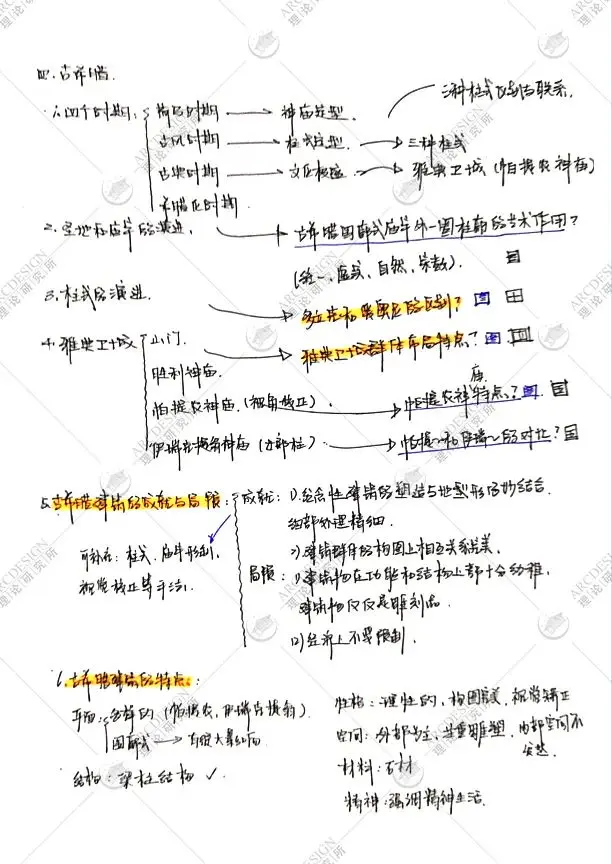 四.古希腊.
1.四个时期: 荷马时期 → 神庙类型.
三种柱式区别与联系.
古风时期 → 柱式类型. → 三种柱式
古典时期 → 文化极盛 → 雅典卫城 (帕提农神庙)
希腊化时期.
2.圣地和庙宇的演进. → 古希腊围廊式庙宇外一圈柱廊的艺术作用?
(统一、虚实、自然、崇敬).
3.柱式的演进. → 多立克和爱奥尼的区别?
4.雅典卫城 山门. → 雅典卫城群体布局特点?
胜利神庙.
帕提农神庙.(视角校正). → 帕提农神庙特点?
伊瑞克提翁神庙 (女郎柱). → 帕提~和伊瑞~的对比?
5.古希腊建筑的成就与局限: 成就: 1)纪念性建筑的塑造与地型形的妙结合.
细部处理精细.
可补充: 柱式、庙宇形制,
视觉校正等手法.
2)建筑群体的构图上相互关系完美.
局限: 1)建筑物在功能和结构上都十分幼稚,
建筑物仅仅是雕刻品.
(2)经济上不受限制.
6.古希腊建筑的特点:
平面: 多样的 (帕提农, 伊瑞克提翁).
围廊式 → 有很大暴露面
结构: 梁柱结构 ✓.
性格: 理性的, 构图完美, 视觉矫正
空间: 外部为主, 注重雕塑, 内部空间不发达.
材料: 石材
精神: 强调精神生活.
ARCDESIGN
理论研究所